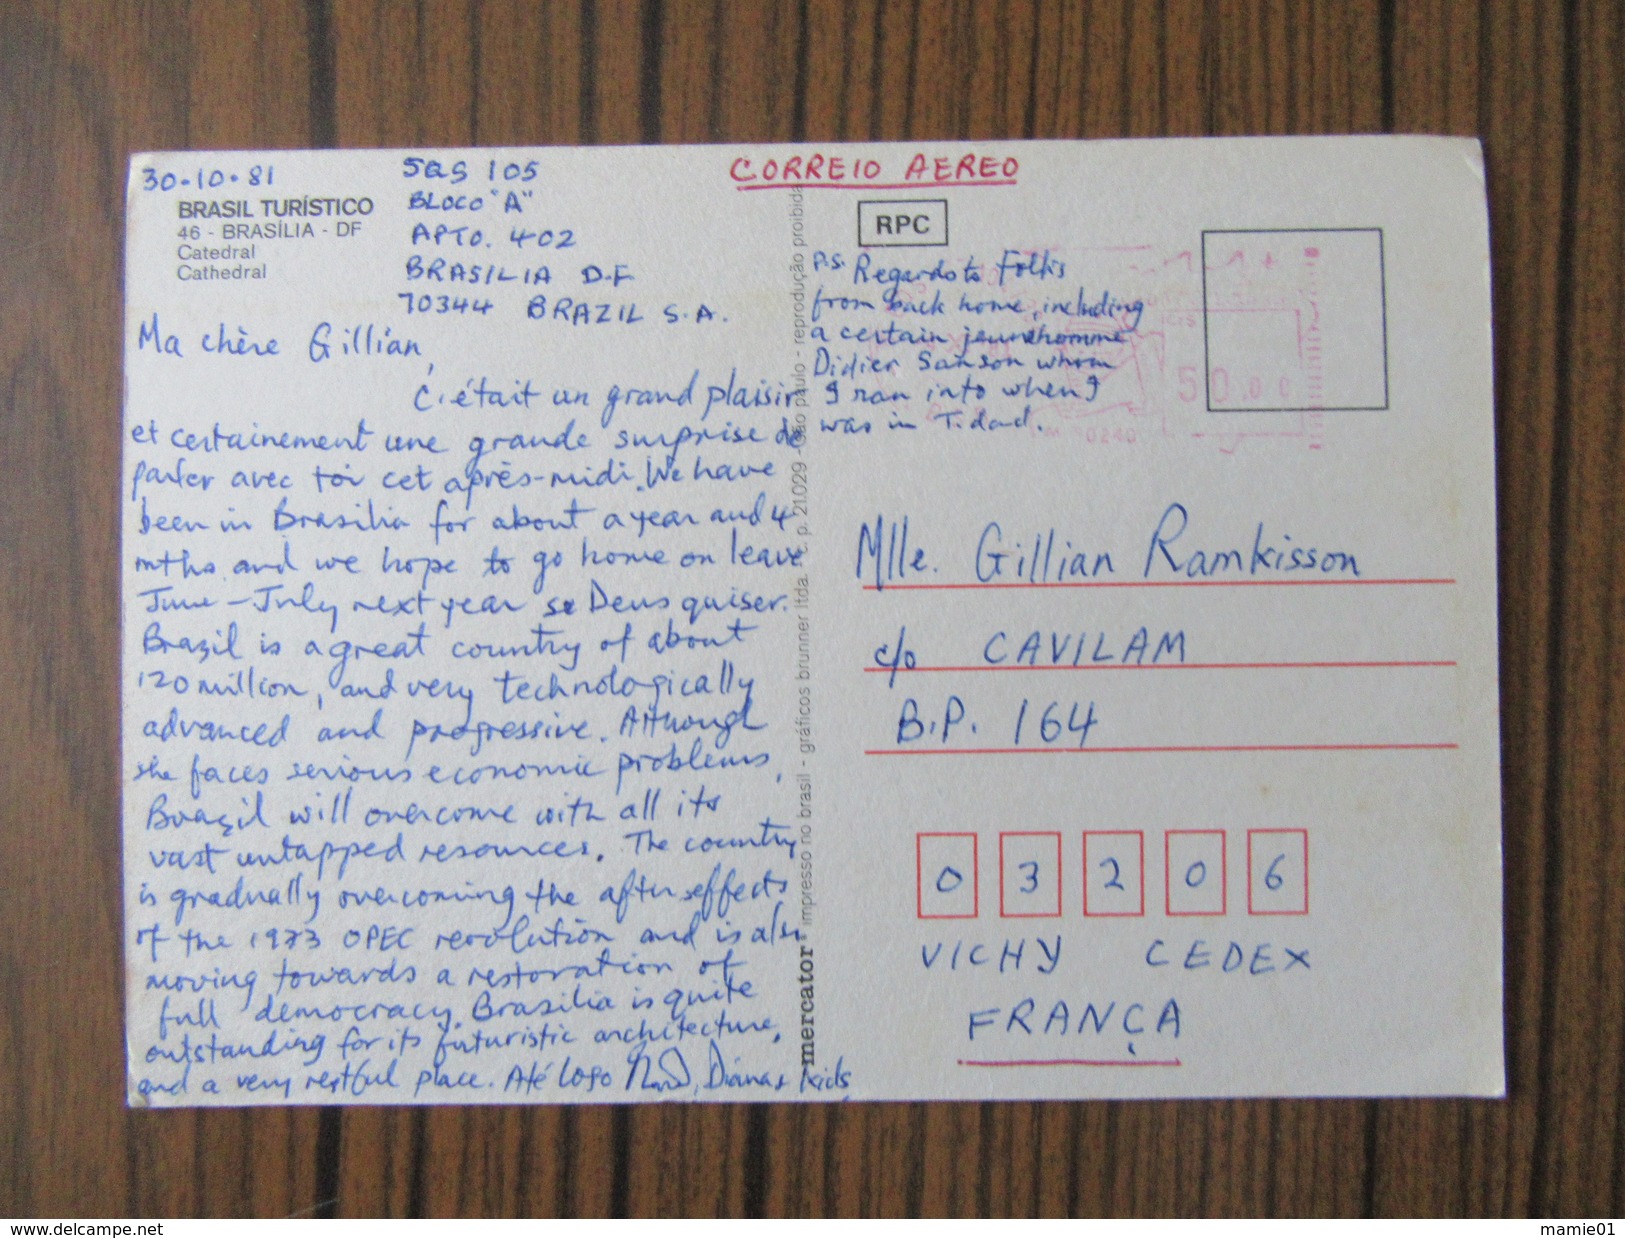 30.10.81
BRASIL TURÍSTICO
46 - BRASÍLIA - DF
Catedral
Cathedral
SQS 105
BLOCO "A"
APTO. 402
BRASILIA D.F
70344 BRAZIL S.A.
Ma chère Gillian,
C'était un grand plaisir
et certainement une grande surprise de
parler avec toi cet après-midi. We have
been in Brasilia for about a year and 4
mths. and we hope to go home on leave
June - July next year se Deus quiser.
Brazil is a great country of about
120 million, and very technologically
advanced and progressive. Although
she faces serious economic problems,
Brazil will overcome with all its
vast untapped resources. The country
is gradually overcoming the after effects
of the 1973 OPEC revolution and is also
moving towards a restoration of
full democracy. Brasilia is quite
outstanding for its futuristic architecture,
and a very restful place. Até logo Diana & kids
mercator impresso no brasil - gráficos brunner ltda. c. p. 21.029 - são paulo - reprodução proibida
CORREIO AEREO
RPC
P.S. Regards to Folks
from back home, including
a certain jeune homme
Didier Sanson whom
I ran into when I
was in T.dad.
50.00
Mlle. Gillian Ramkisson
c/o CAVILAM
B.P. 164
0 3 2 0 6
VICHY CEDEX
FRANÇA
www.delcampe.net
mamie01